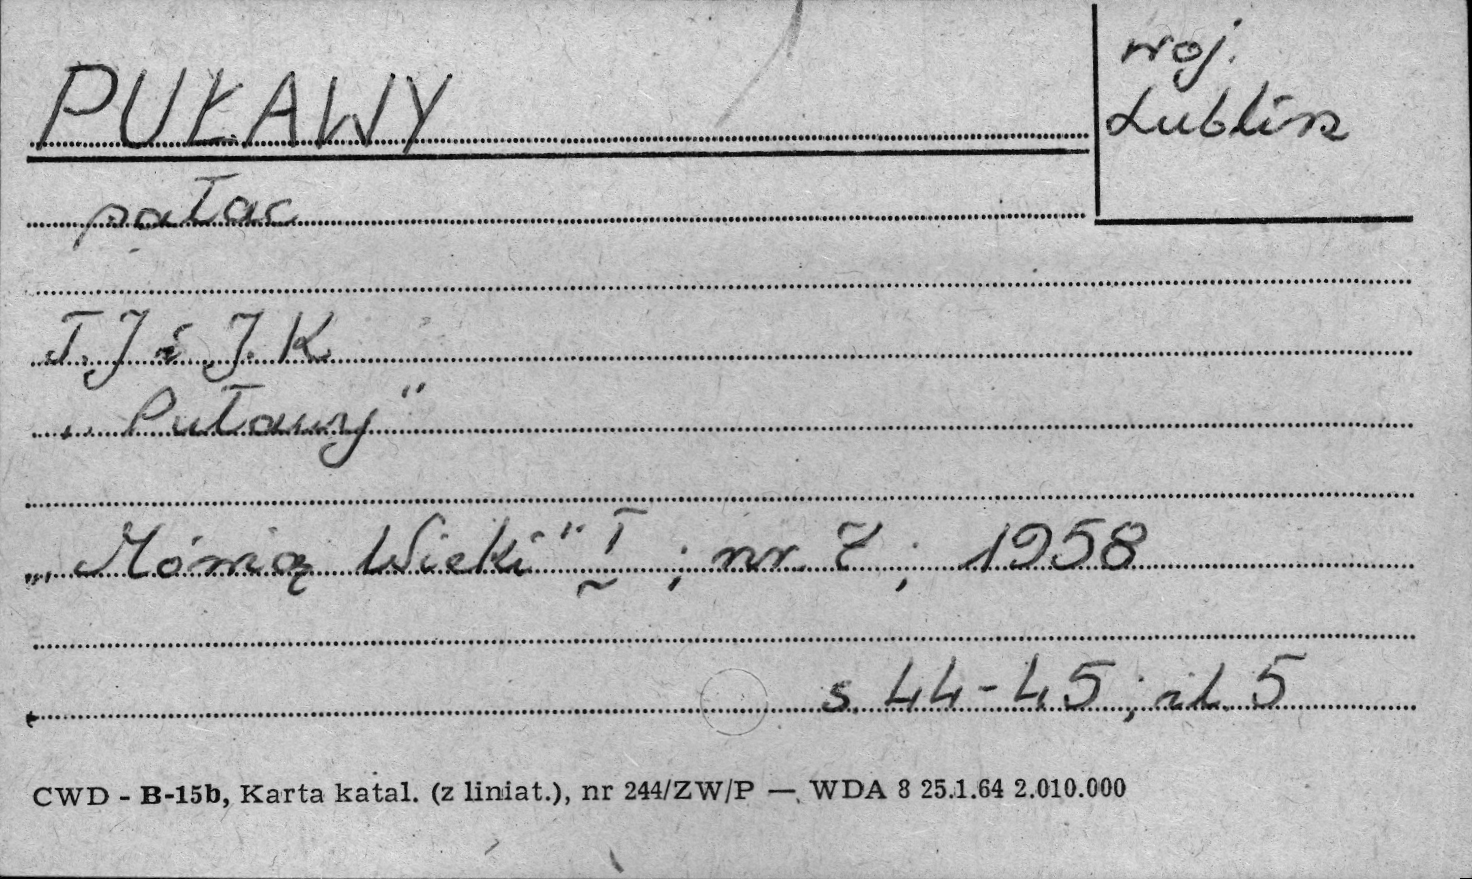 PUŁAWY
woj.
Lublin
pałac
T.J i J.K
„Puławy"
„Mówią Wieki" I ; nr. 7 ; 1958
s. 44-45 ; il. 5
CWD - B-15b, Karta katal. (z liniat.), nr 244/ZW/P — WDA 8 25.1.64 2.010.000